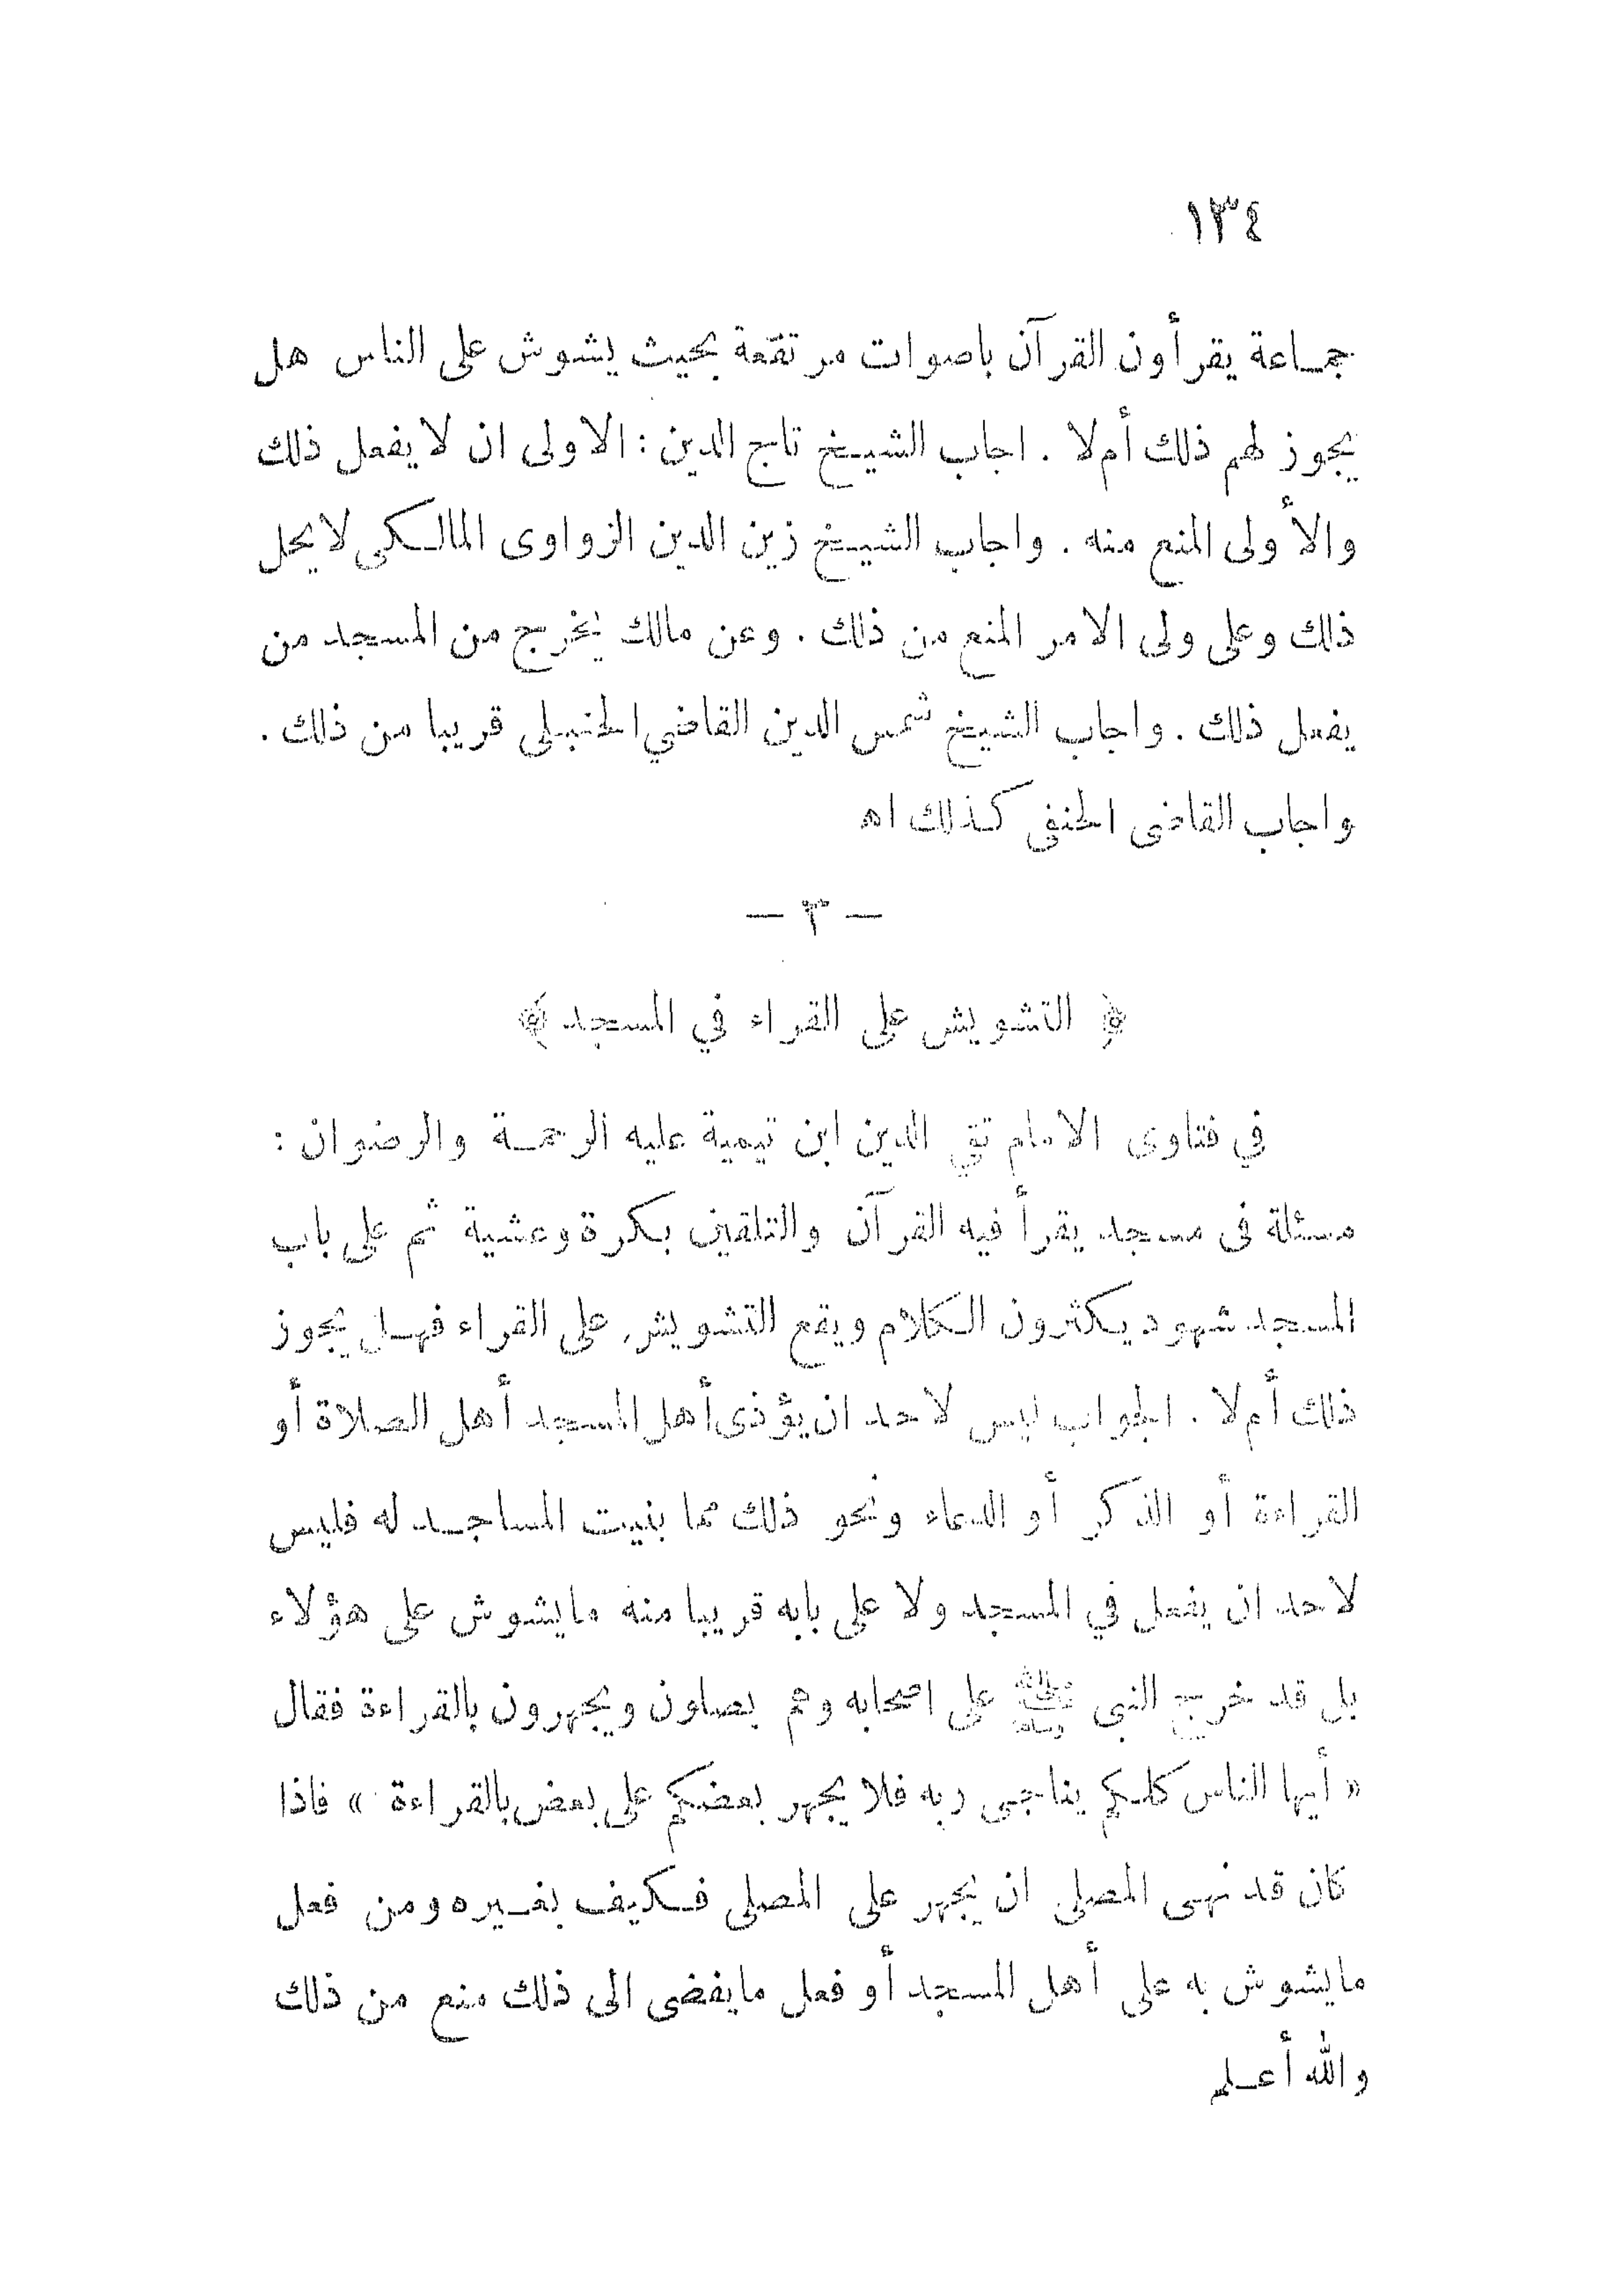 ١٣٤
جمـاعة يقرأون القرآن باصوات مرتفعة بحيث يشوش على الناس هل
يجوز لهم ذلك أم لا . اجاب الشيـخ تاج الدين : الاولى ان لا يفعل ذلك
والأولى المنع منه . واجاب الشيـخ زين الدين الزواوى المالـكى لا يحل
ذلك وعلى ولى الامر المنع من ذلك . وعن مالك يخرج من المسجد من
يفعل ذلك . واجاب الشيخ شمس الدين القاضي الحنبـلى قريبا من ذلك .
واجاب القاضى الحنفى كـذلك اه
— ٣ —
﴿ التشويش على القراء في المسجد ﴾
في فتاوى الامام تقي الدين ابن تيمية عليه الرحمـة والرضوان :
مسئلة فى مسجد يقرأ فيه القرآن والتلقين بـكرة وعشية ثم على باب
المسجد شهود يـكثرون الـكلام ويقع التشويش على القراء فهـل يجوز
ذلك أم لا . الجواب ليس لاحد ان يؤذى أهل المسجد أهل الصلاة أو
القراءة أو الذكر أو الدعاء ونحو ذلك مما بنيت المساجـد له فليس
لاحد ان يفعل في المسجد ولا على بابه قريبا منه ما يشوش على هؤلاء
بل قد خرج النبى ﷺ على اصحابه وهم يصلون ويجهرون بالقراءة فقال
« أيها الناس كلـكم يناجى ربه فلا يجهر بعضكم على بعض بالقراءة » فاذا
كان قد نهى المصلى ان يجهر على المصلى فـكيف بغـيره ومن فعل
ما يشوش به على أهل المسجد أو فعل ما يفضى الى ذلك منع من ذلك
والله أعـلم